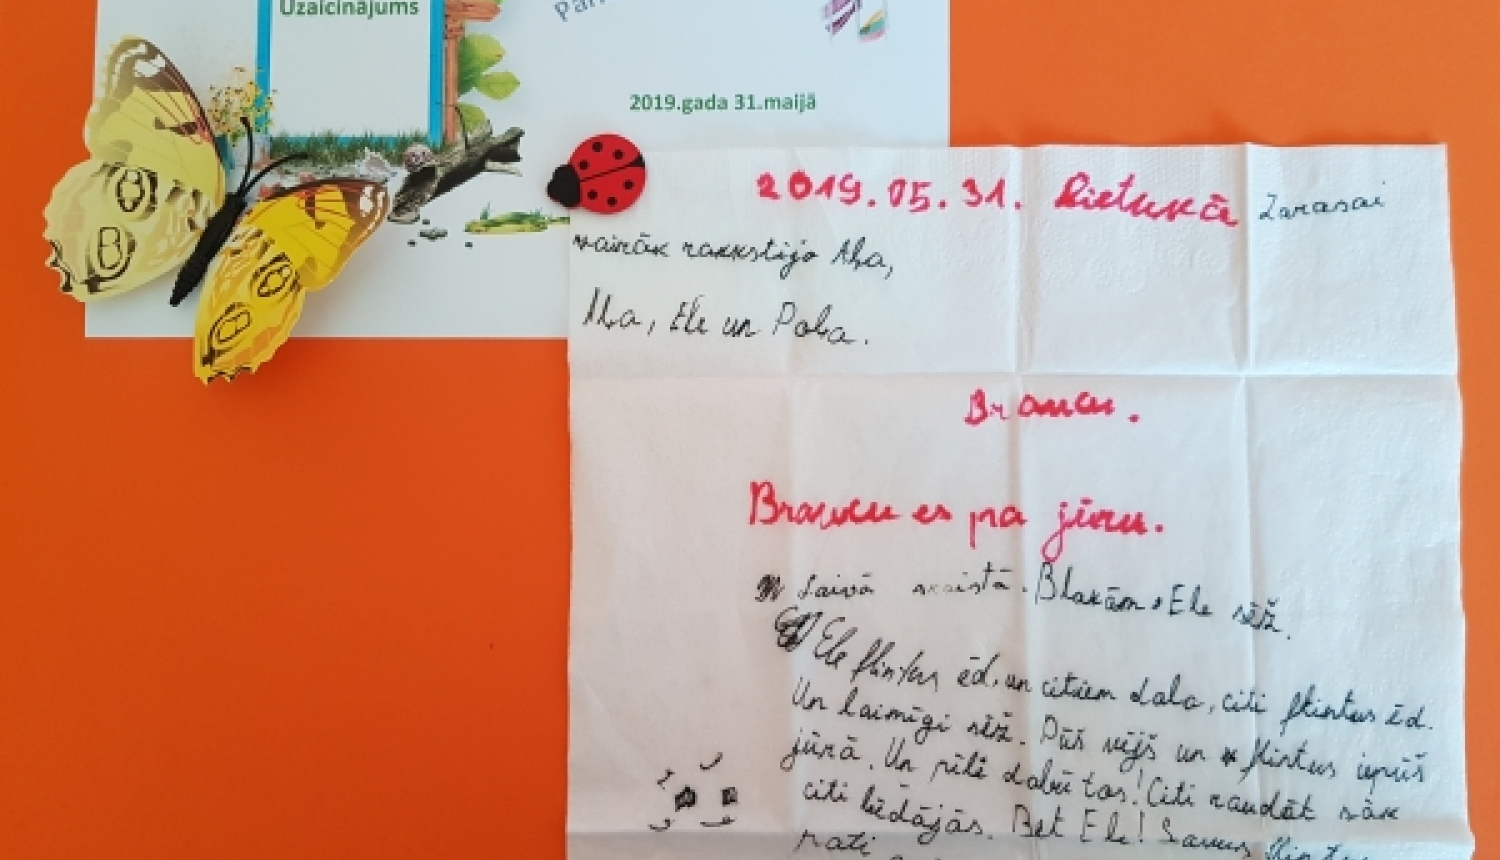 Uzaicinājums
2019.gada 31.maijā
2019.05.31. Lietuvā Zarasai
vairāk rakstīja Aļa,
Aļa, Ele un Pola.
Braucu.
Braucu es pa jūru.
Laivā skaistā. Blakām Ele sēž.
Ele flintus ēd, un citiem dala, citi flintus ēd.
Un laimīgi sēž. Pūš vējš un flintus iepūš
jūrā. Un pīle dabū tos! Citi raudāt sāk
citi bēdājās. Bet Ele! Savus flintus
pati